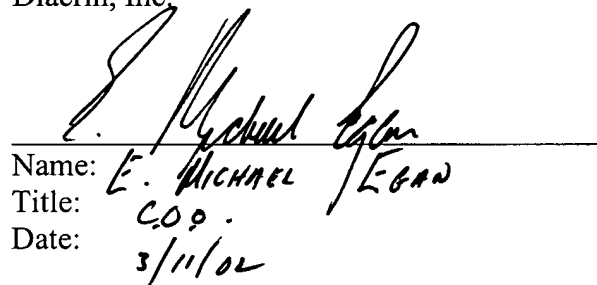 Diacrin, Inc.
E. Michael Egan
Name: E. MICHAEL EGAN
Title: C.O.O.
Date: 3/11/02